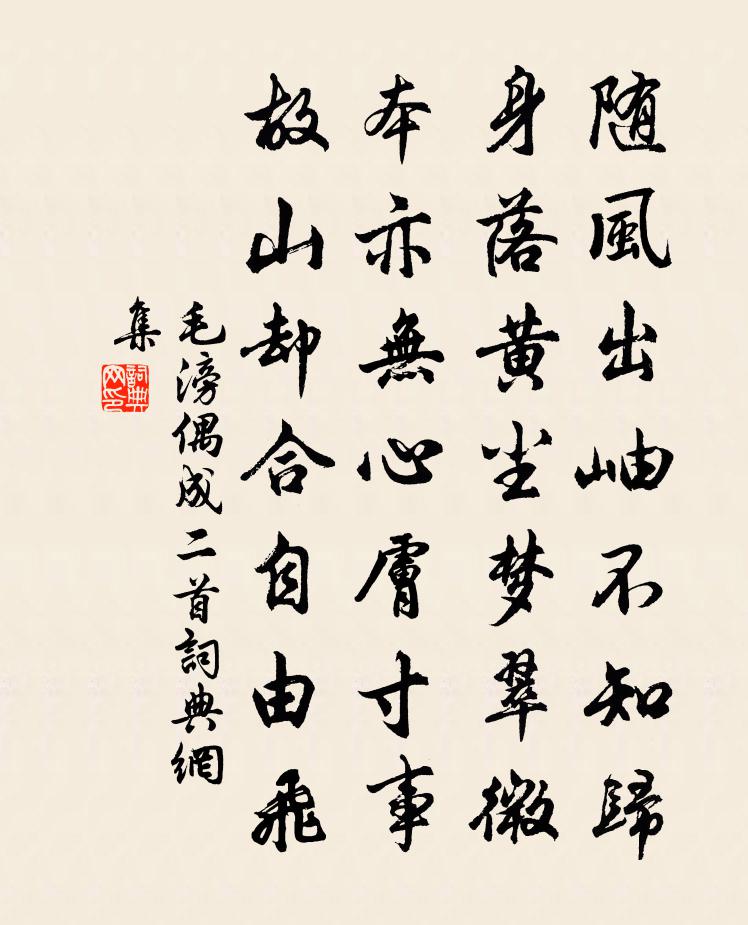 随風出岫不知歸
身落黄尘梦翠微
本亦無心膚寸事
故山却合自由飛
毛滂偶成二首詞典網
集
詞典网印